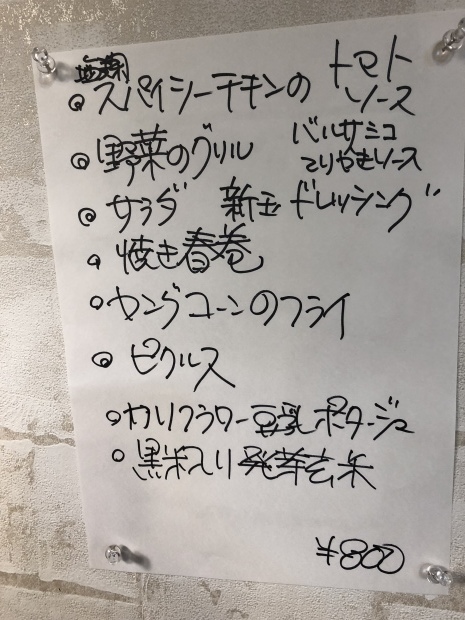 塩麹
スパイシーチキンの トマトソース
野菜のグリル バルサミコてりやきソース
サラダ 新玉ドレッシング
焼き春巻
ヤングコーンのフライ
ピクルス
カリフラワー豆乳ポタージュ
黒米入り発芽玄米
¥800